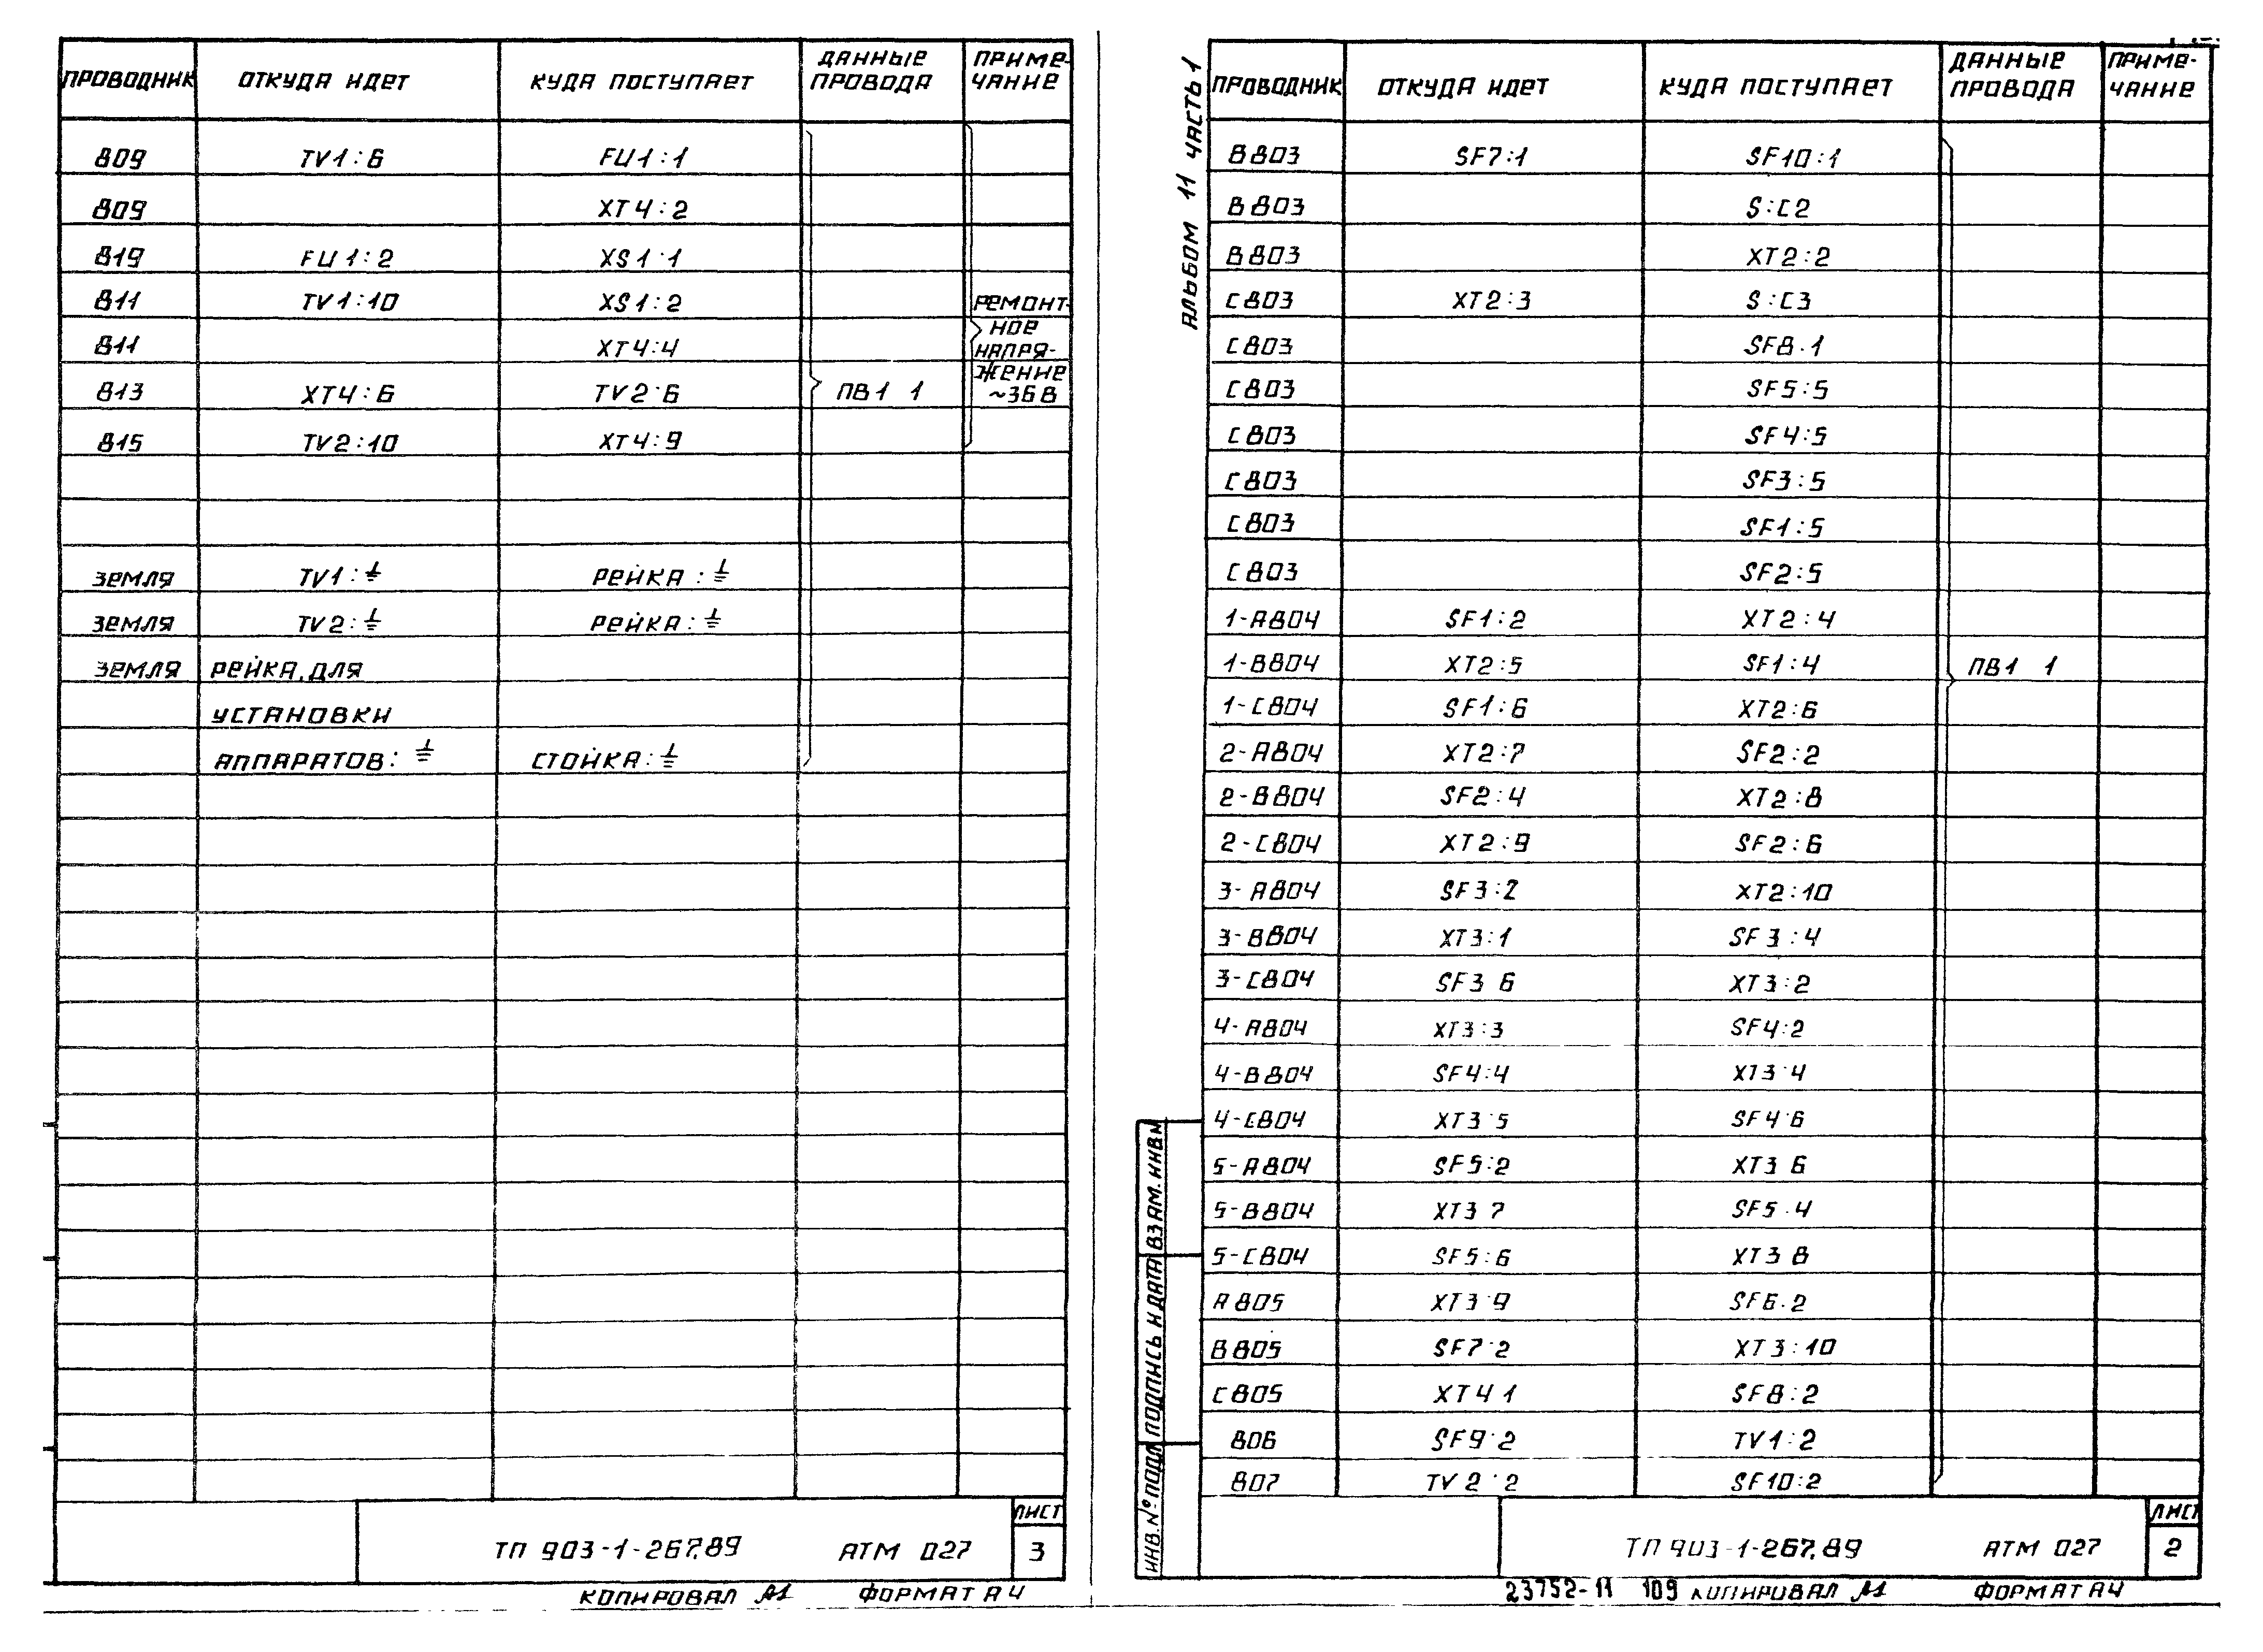 ПРОВОДНИК ОТКУДА ИДЕТ КУДА ПОСТУПАЕТ ДАННЫЕ ПРОВОДА ПРИМЕ-ЧАНИЕ
809 TV1:6 FU1:1
809 XT4:2
819 FU1:2 XS1:1
811 TV1:10 XS1:2
811 XT4:4
813 XT4:6 TV2:6 ПВ1 1
815 TV2:10 XT4:9
РЕМОНТ-
НОЕ
НАПРЯ-
ЖЕНИЕ
~36В
ЗЕМЛЯ TV1:⏚ РЕЙКА:⏚
ЗЕМЛЯ TV2:⏚ РЕЙКА:⏚
ЗЕМЛЯ РЕЙКА ДЛЯ
УСТАНОВКИ
АППАРАТОВ:⏚ СТОЙКА:⏚
ТП 903-1-267.89 АТМ 027
ЛИСТ
3
КОПИРОВАЛ ФОРМАТ А4
АЛЬБОМ 11 ЧАСТЬ 1
ПРОВОДНИК ОТКУДА ИДЕТ КУДА ПОСТУПАЕТ ДАННЫЕ ПРОВОДА ПРИМЕ-ЧАНИЕ
B803 SF7:1 SF10:1
B803 S:C2
B803 XT2:2
C803 XT2:3 S:C3
C803 SF8.1
C803 SF5:5
C803 SF4:5
C803 SF3:5
C803 SF1:5
C803 SF2:5
1-A804 SF1:2 XT2:4
1-B804 XT2:5 SF1:4 ПВ1 1
1-C804 SF1:6 XT2:6
2-A804 XT2:7 SF2:2
2-B804 SF2:4 XT2:8
2-C804 XT2:9 SF2:6
3-A804 SF3:2 XT2:10
3-B804 XT3:1 SF3:4
3-C804 SF3 6 XT3:2
4-A804 XT3:3 SF4:2
4-B804 SF4:4 XT3:4
4-C804 XT3:5 SF4:6
5-A804 SF5:2 XT3 6
5-B804 XT3 7 SF5.4
5-C804 SF5:6 XT3 8
A805 XT3:9 SF6.2
B805 SF7:2 XT3:10
C805 XT4 1 SF8:2
806 SF9:2 TV1:2
807 TV2:2 SF10:2
ВЗАМ. ИНВ.№
ПОДПИСЬ И ДАТА
ИНВ.№ ПОДЛ
ТП 903-1-267.89 АТМ 027
ЛИСТ
2
23752-11 109 КОПИРОВАЛ ФОРМАТ А4